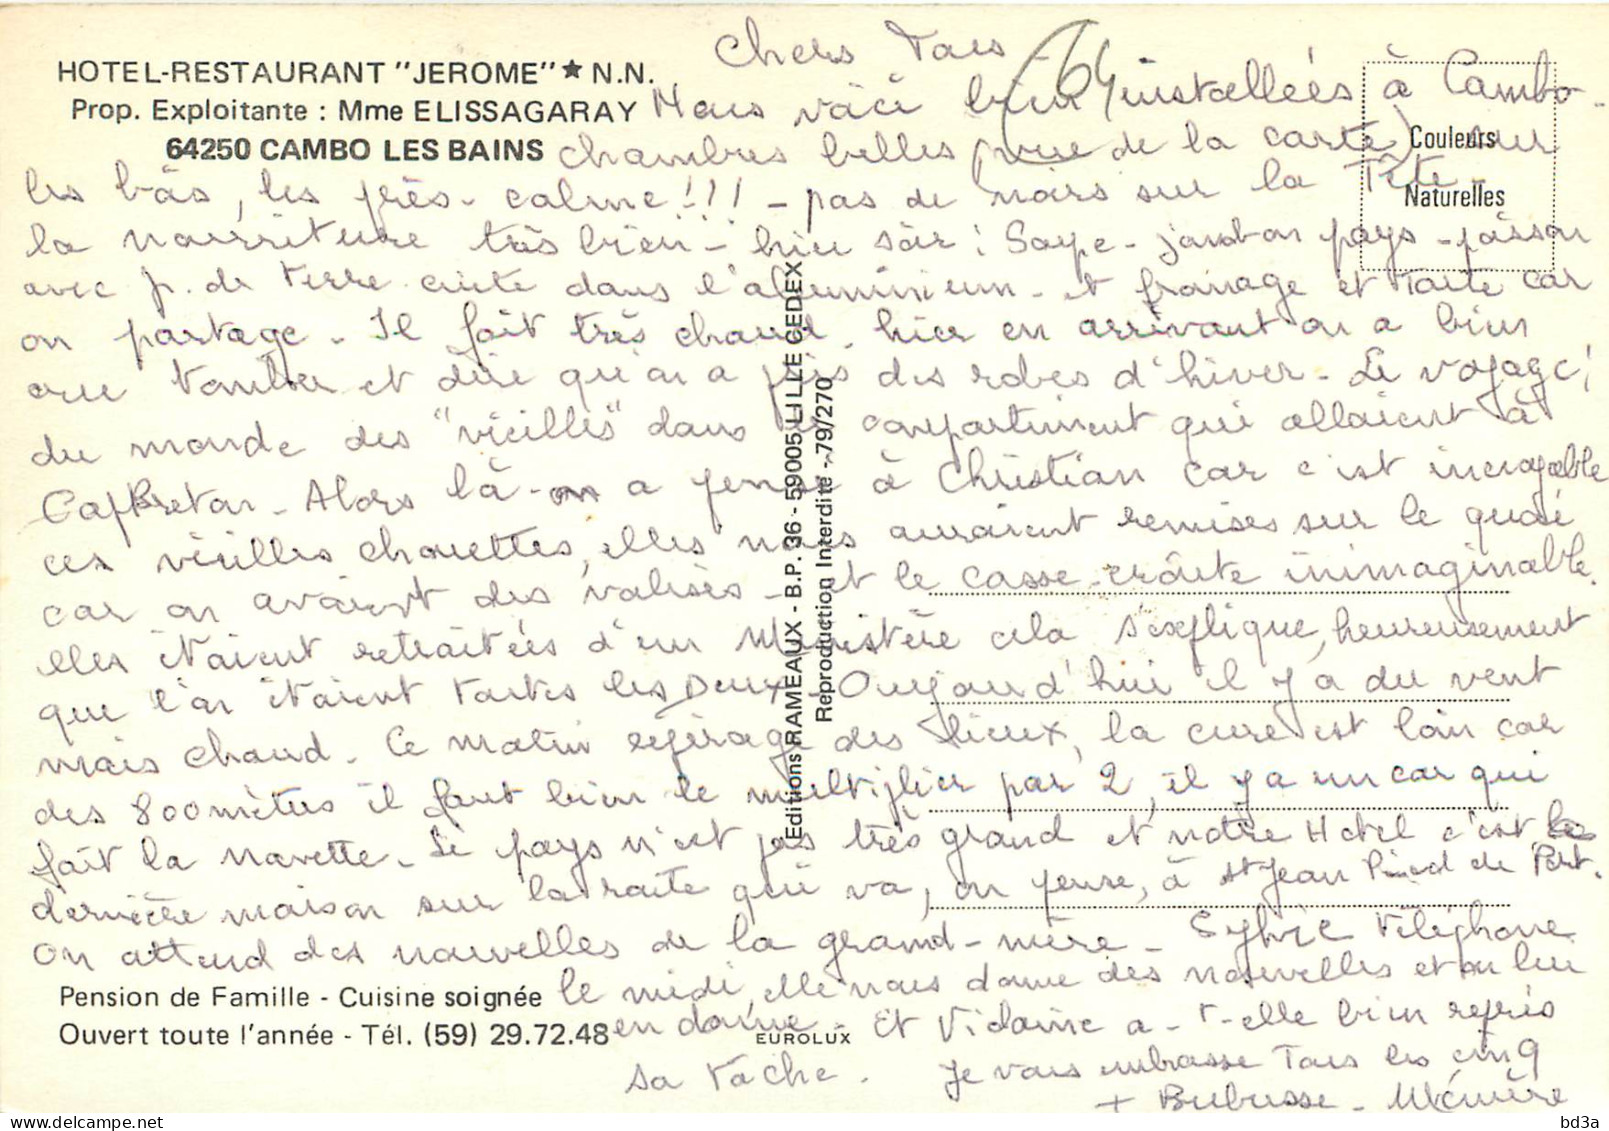 Chers Tous
HOTEL-RESTAURANT "JEROME" ★ N.N.
Prop. Exploitante : Mme ELISSAGARAY
64250 CAMBO LES BAINS
64
Couleurs
Naturelles
Nous voici bien installées à Cambo -
chambres belles (vue de la carte) sur
les bas, les près - calme !!! - pas de noirs sur la Tête -
la nourriture très bien - hier soir : Soupe - jambon pays - poisson
avec p. de terre cuite dans l'aluminium - et fromage et tarte car
on partage - Il fait très chaud - hier en arrivant on a bien
cru tomber et dire qu'on a pris des robes d'hiver - Le voyage !
du monde des "vieilles" dans le compartiment qui allaient à
CapBreton - Alors là - on a pensé à Christian car c'est incroyable
ces vieilles chouettes, elles nous auraient remises sur le quai
car on avaient des valises - et le casse-croûte inimaginable.
elles étaient retraitées d'un Ministère cela s'explique, heureusement
que l'on étaient toutes les Deux - Oujourd'hui il y a du vent
mais chaud - Ce matin repérage des lieux, la cure est loin car
des 800 mètres il faut bien le multiplier par 2, il y a un car qui
fait la navette - Le pays n'est pas très grand et notre Hotel c'est la
dernière maison sur la route qui va, on pense, à St Jean Pied de Port.
On attend des nouvelles de la grand-mère - Sylvie Téléphone
le midi, elle nous donne des nouvelles et on lui
en donne - Et Vidaine a-t-elle bien repris
sa tache. Je vous embrasse Tous les cinq
+ Bubusse - Mémère
Pension de Famille - Cuisine soignée
Ouvert toute l'année - Tél. (59) 29.72.48
EUROLUX
Editions RAMEAUX - B.P. 36 - 59005 LILLE CEDEX
Reproduction Interdite - 79/270
bd3a